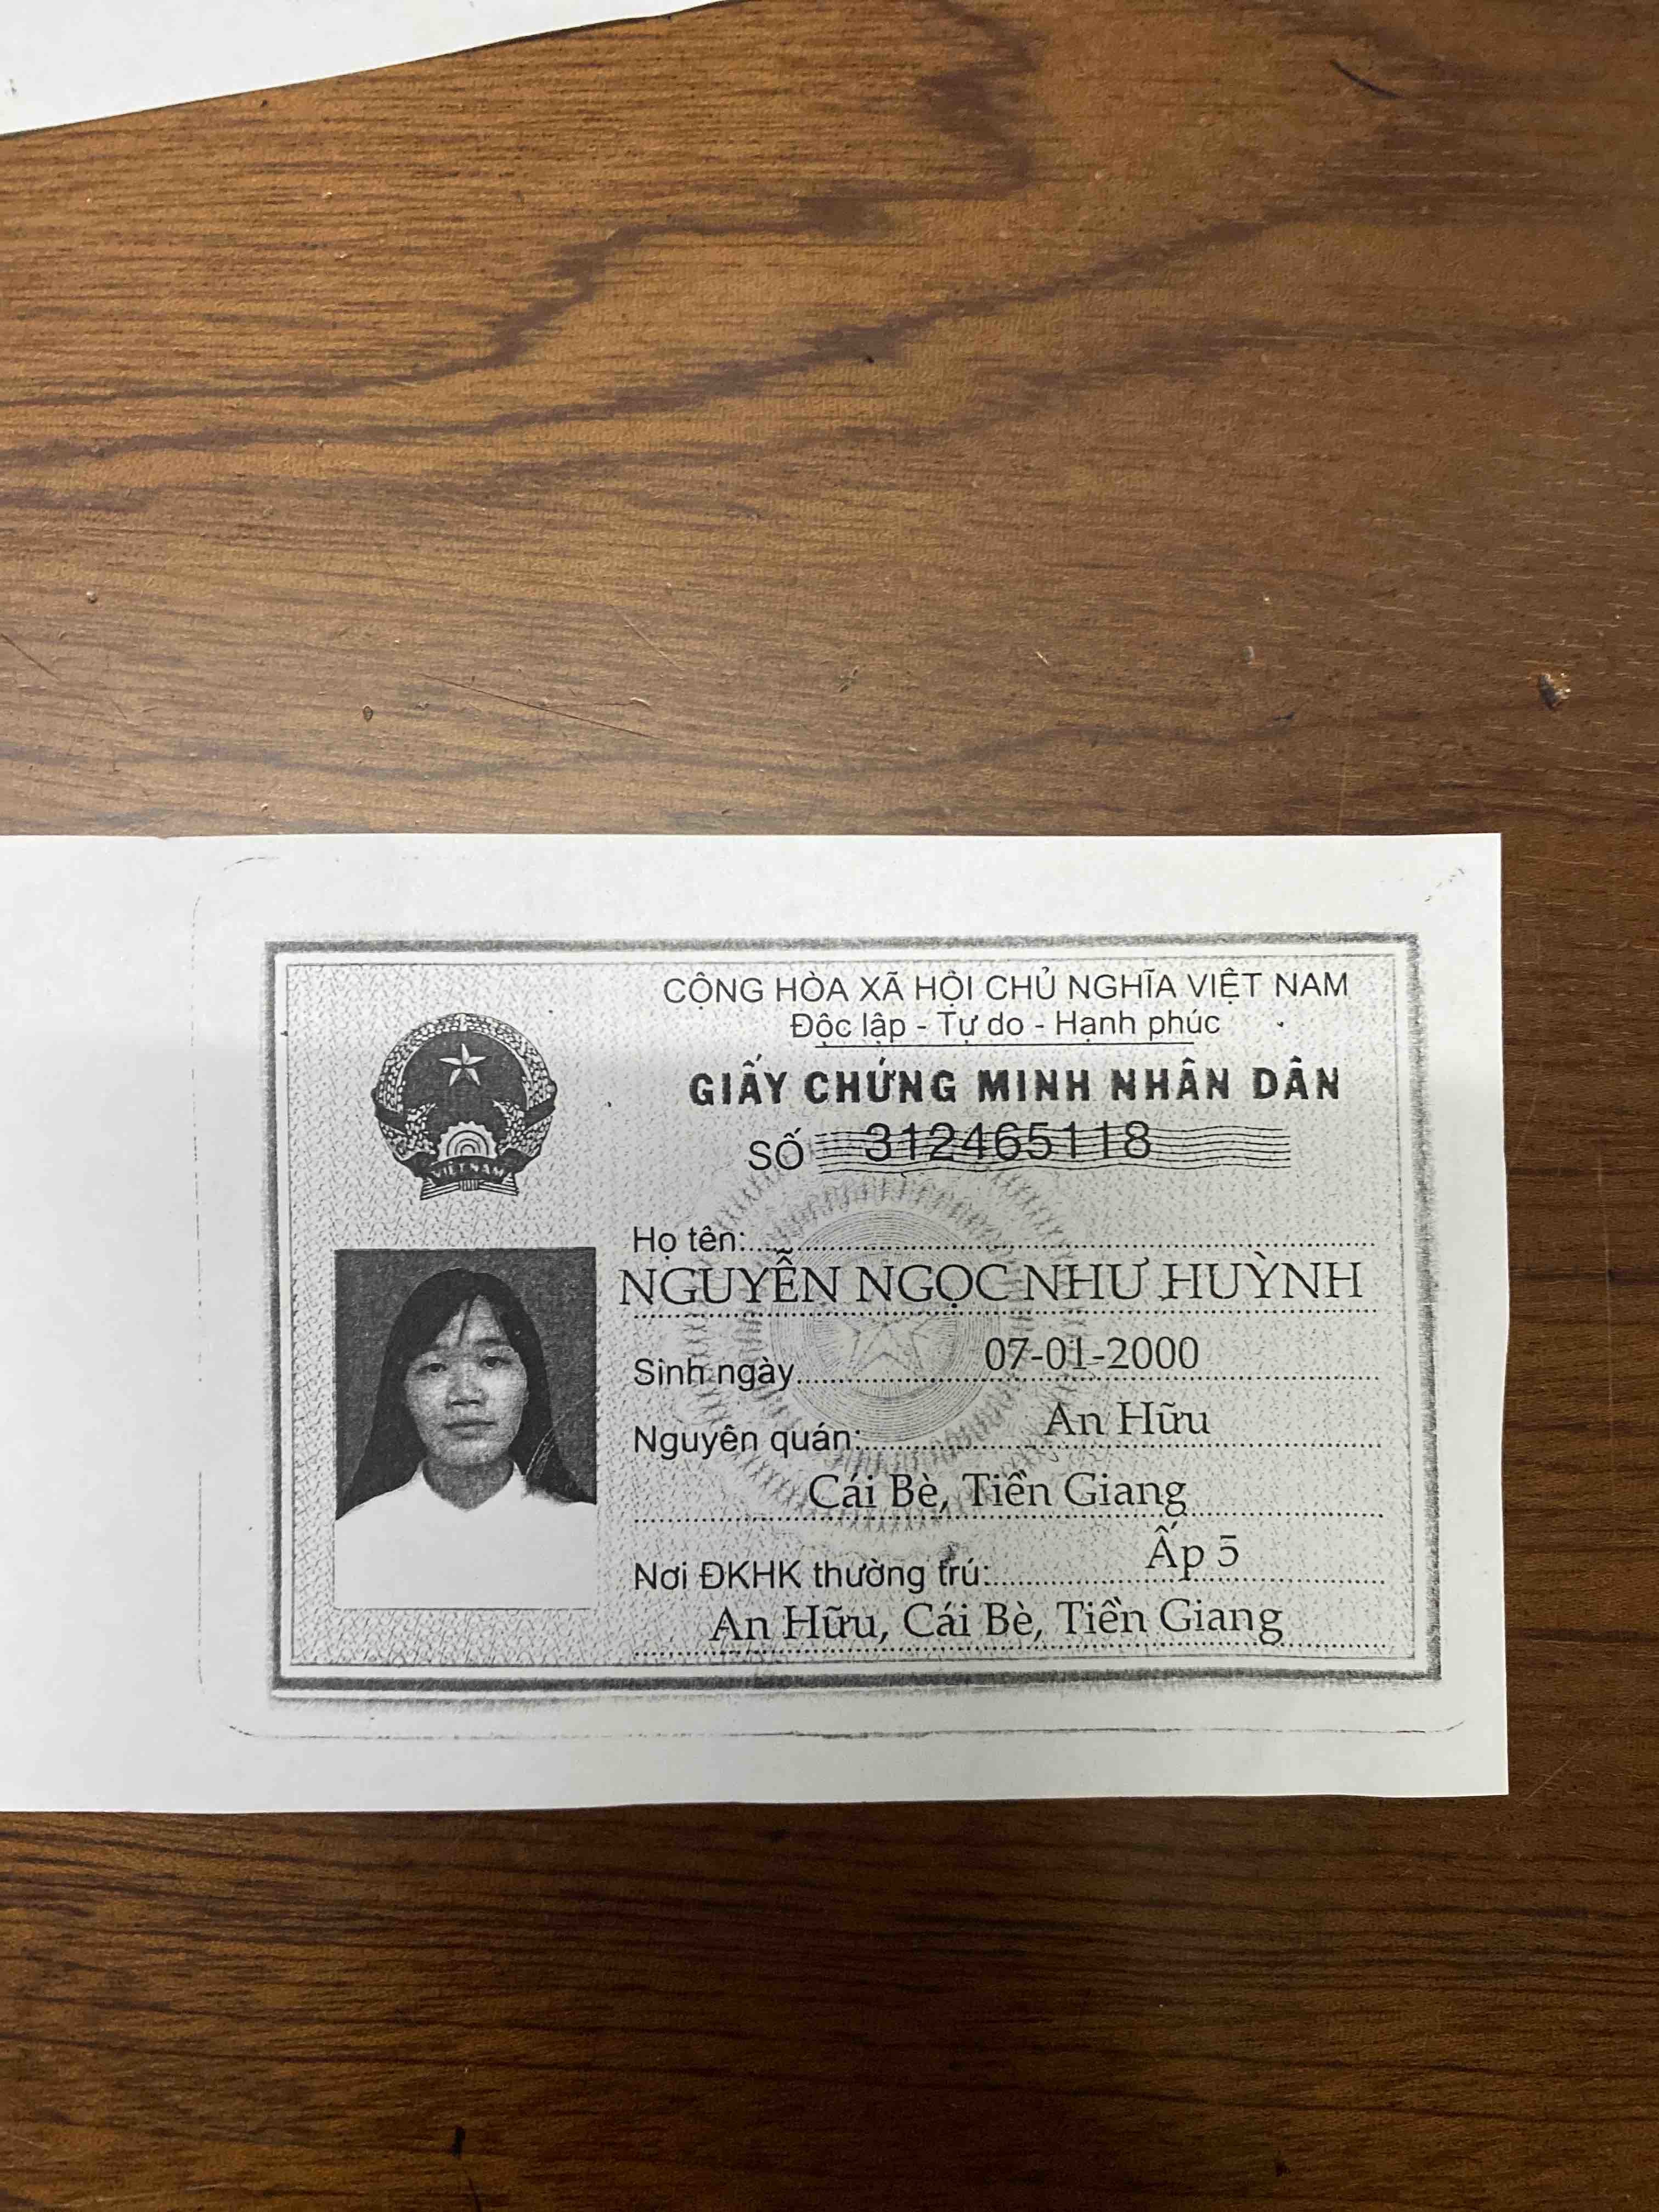 CỘNG HÒA XÃ HỘI CHỦ NGHĨA VIỆT NAM
Độc lập - Tự do - Hạnh phúc
GIẤY CHỨNG MINH NHÂN DÂN
SỐ 312465118
VIỆT NAM
Họ tên:
NGUYỄN NGỌC NHƯ HUỲNH
Sinh ngày 07-01-2000
Nguyên quán: An Hữu
Cái Bè, Tiền Giang
Nơi ĐKHK thường trú: Ấp 5
An Hữu, Cái Bè, Tiền Giang